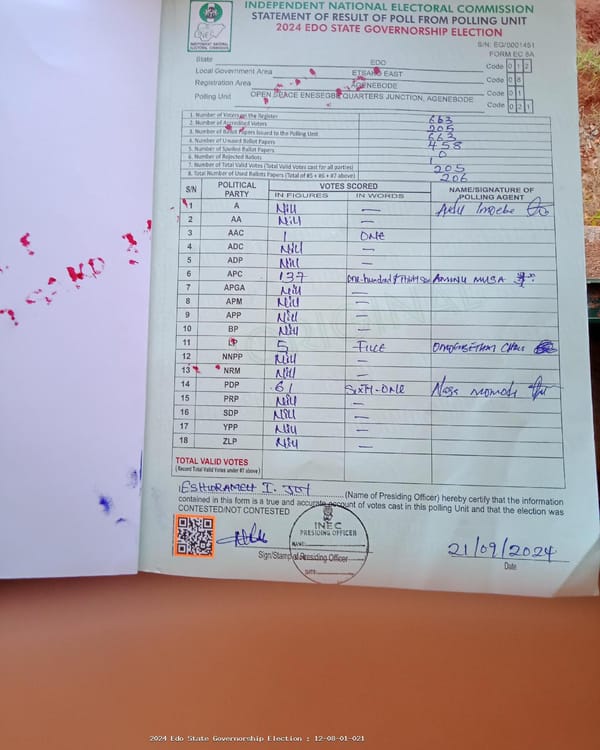 INDEPENDENT NATIONAL ELECTORAL COMMISSION
STATEMENT OF RESULT OF POLL FROM POLLING UNIT
2024 EDO STATE GOVERNORSHIP ELECTION
S/N: EG/0001451
FORM EC 8A
INDEPENDENT NATIONAL ELECTORAL COMMISSION
State EDO Code 0 1 2
Local Government Area ETSAKO EAST Code 0 8
Registration Area AGENEBODE Code 0 1
Polling Unit OPEN SPACE ENESEGBE QUARTERS JUNCTION, AGENEBODE Code 0 2 1
1. Number of Voters on the Register 663
2. Number of Accredited Voters 205
3. Number of Ballot Papers Issued to the Polling Unit 663
4. Number of Unused Ballot Papers 458
5. Number of Spoiled Ballot Papers 0
6. Number of Rejected Ballots 1
7. Number of Total Valid Votes (Total Valid Votes cast for all parties) 205
8. Total Number of Used Ballots Papers (Total of #5 + #6 + #7 above) 206
S/N POLITICAL PARTY VOTES SCORED NAME/SIGNATURE OF POLLING AGENT
IN FIGURES IN WORDS
1 A Nill —
2 AA Nill —
3 AAC 1 ONE
4 ADC Nill —
5 ADP Nill —
6 APC 137 One-hundred & AMINU MUSA
7 APGA Nill —
8 APM Nill —
9 APP Nill —
10 BP Nill —
11 LP 5
12 NNPP Nill —
13 NRM Nill —
14 PDP 61 SIXTI-ONE
15 PRP Nill —
16 SDP Nill —
17 YPP Nill —
18 ZLP Nill —
TOTAL VALID VOTES
(Record Total Valid Votes under #7 above)
I. JOY (Name of Presiding Officer) hereby certify that the information
contained in this form is a true and accurate account of votes cast in this polling Unit and that the election was
CONTESTED/NOT CONTESTED
INEC
PRESIDING OFFICER
NAME:
DATE:
Sign/Stamp of Presiding Officer
21/09/2024
Date
2024 Edo State Governorship Election : 12-08-01-021